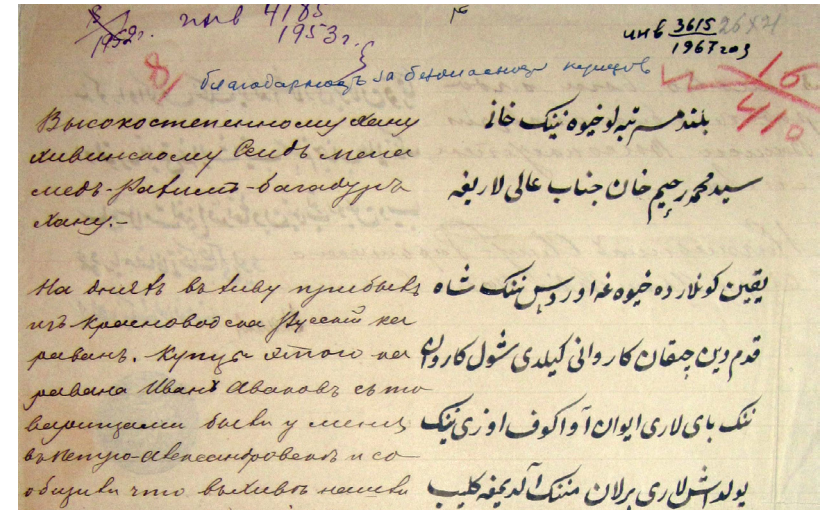 инв 4185
1952г. 1953г.
инв 3615
1967 год
26х21
8/
16
410
благодарность за безопасность купцов
Высокостепенному Хану
Хивинскому Сеидъ-Мага
медъ-Рахимъ-Багадуръ
Хану.-
На дняхъ въ Хиву прибылъ
изъ Красноводска Русскій ка
раванъ. Купцы этого ка
равана Иванъ Аваковъ съ то
варищами были у меня
въ Петро-Александровскѣ и со
общили что въ Хивѣ нашли
بلند مرتبه لو خیوه نینک خانی
سید محمد رحیم خان جناب عالی لاریغه
یقین کونلارده خیوه غه اوروس ننک شاه
قدم دین چیقان کاروانی کیلدی شول کاروان
ننک بای لاری ایوان آواکوف اوزی نینک
یولداش لاری برلان مننک آلدیمغه کلیب